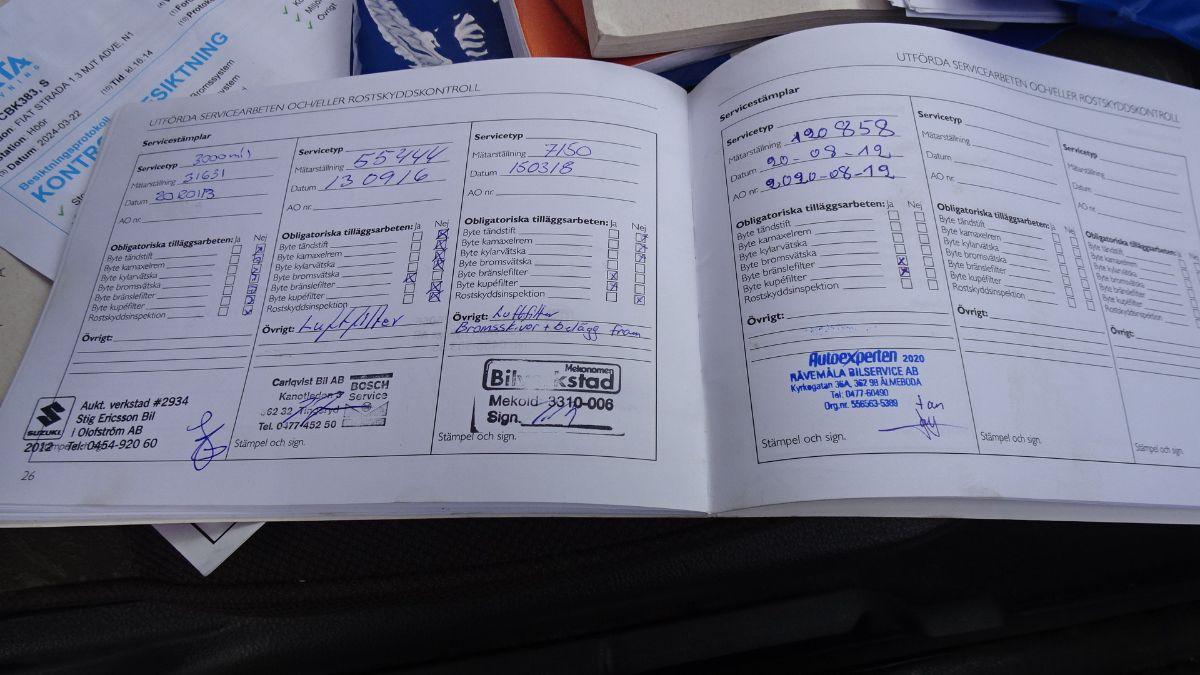 CBK383, S
FIAT STRADA 1.3 MJT ADVE, N1
Tid: kl.16:14
Station: Höör
Datum: 2024-03-22
Besiktningsprotokoll
KONTR
BESIKTNING
Bromssystem
Övrigt
UTFÖRDA SERVICEARBETEN OCH/ELLER ROSTSKYDDSKONTROLL
Servicestämplar
Servicetyp 3000mil
Mätarställning 31631
Datum
AO nr.
Obligatoriska tilläggsarbeten: Ja Nej
Byte tändstift
Byte kamaxelrem
Byte kylarvätska
Byte bromsvätska
Byte bränslefilter
Byte kupéfilter
Rostskyddsinspektion
Övrigt:
SUZUKI
2012
Aukt. verkstad #2934
Stig Ericsson Bil
i Olofström AB
Tel: 0454-920 60
Stämpel och sign.
26
Servicetyp
Mätarställning 55444
Datum 130916
AO nr.
Obligatoriska tilläggsarbeten: Ja Nej
Byte tändstift
Byte kamaxelrem
Byte kylarvätska
Byte bromsvätska
Byte bränslefilter
Byte kupéfilter
Rostskyddsinspektion
Övrigt: Luftfilter
Carlqvist Bil AB
Kanotleden 3
362 32 Tingsryd
Tel. 0477-452 50
BOSCH
Service
Stämpel och sign.
Servicetyp
Mätarställning 7150
Datum 150318
AO nr.
Obligatoriska tilläggsarbeten: Ja Nej
Byte tändstift
Byte kamaxelrem
Byte kylarvätska
Byte bromsvätska
Byte bränslefilter
Byte kupéfilter
Rostskyddsinspektion
Övrigt: Luftfilter
Bromsskivor + belägg fram
Mekonomen
Bilverkstad
Mekoid 3310-006
Sign.
Stämpel och sign.
UTFÖRDA SERVICEARBETEN OCH/ELLER ROSTSKYDDSKONTROLL
Servicestämplar
Servicetyp
Mätarställning 190858
Datum 20-08-12
AO nr. 2020-08-12
Obligatoriska tilläggsarbeten: Ja Nej
Byte tändstift
Byte kamaxelrem
Byte kylarvätska
Byte bromsvätska
Byte bränslefilter
Byte kupéfilter
Rostskyddsinspektion
Övrigt:
Autoexperten 2020
RÄVEMÅLA BILSERVICE AB
Kyrkogatan 36A, 362 98 ÄLMEBODA
Tel: 0477-60490
Org.nr. 556563-5389
Stämpel och sign.
Servicetyp
Mätarställning
Datum
AO nr.
Obligatoriska tilläggsarbeten: Ja Nej
Byte tändstift
Byte kamaxelrem
Byte kylarvätska
Byte bromsvätska
Byte bränslefilter
Byte kupéfilter
Rostskyddsinspektion
Övrigt:
Stämpel och sign.
Servicetyp
Mätarställning
Datum
AO nr.
Obligatoriska tilläggsarbeten:
Byte tändstift
Byte kamaxelrem
Byte kylarvätska
Byte bromsvätska
Byte bränslefilter
Byte kupéfilter
Rostskyddsinspektion
Övrigt:
Stämpel och sign.